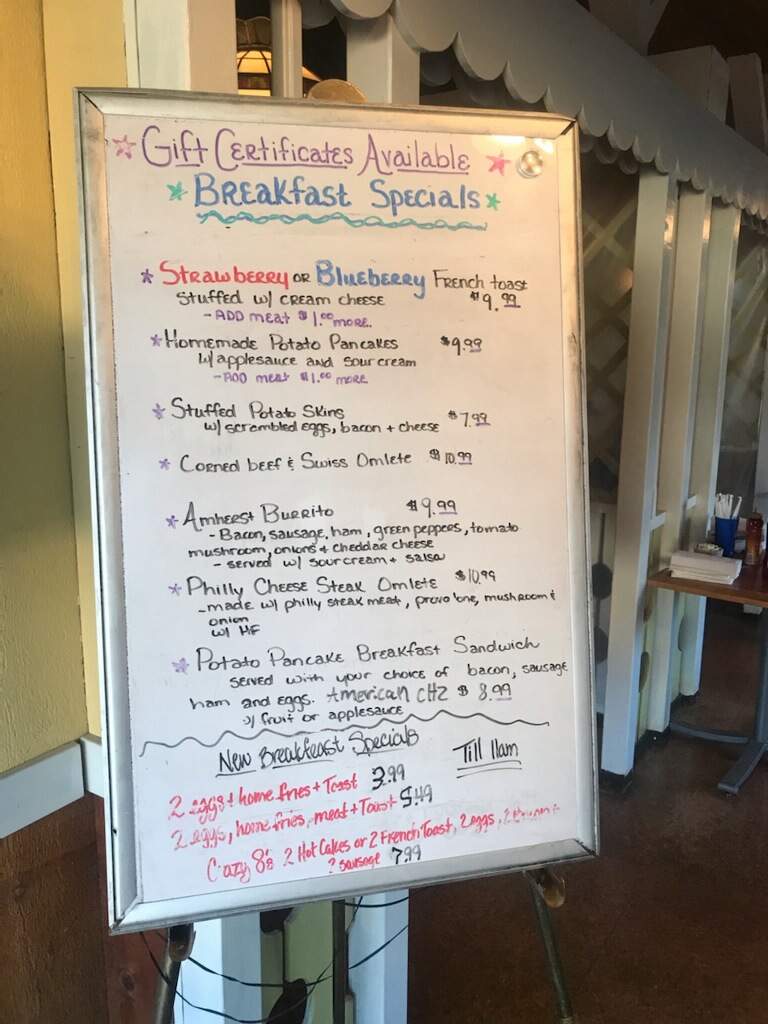 Gift Certificates Available
Breakfast Specials
Strawberry or Blueberry French toast
Stuffed w/ cream cheese $9.99
- ADD meat $1.00 more.
Homemade Potato Pancakes $9.99
w/applesauce and sour cream
- ADD meat $1.00 more
Stuffed Potato Skins $7.99
w/ scrambled eggs, bacon + cheese
Corned beef & Swiss Omlete $10.99
Amherst Burrito $9.99
- Bacon, sausage, ham, green peppers, tomato
mushroom, onions + cheddar cheese
- served w/ sour cream + salsa
Philly Cheese Steak Omlete $10.99
- made w/ philly steak meat, provolone, mushroom &
onion
w/ HF
Potato Pancake Breakfast Sandwich
served with your choice of bacon, sausage
ham and eggs. American CHZ $8.99
w/ fruit or applesauce
New Breakfeast Specials Till 11am
2 eggs + home fries + Toast 3.99
2 eggs, home fries, meat + Toast 5.49
Crazy 8's 2 Hot Cakes or 2 French Toast, 2 eggs, 2
2 sausage 7.99